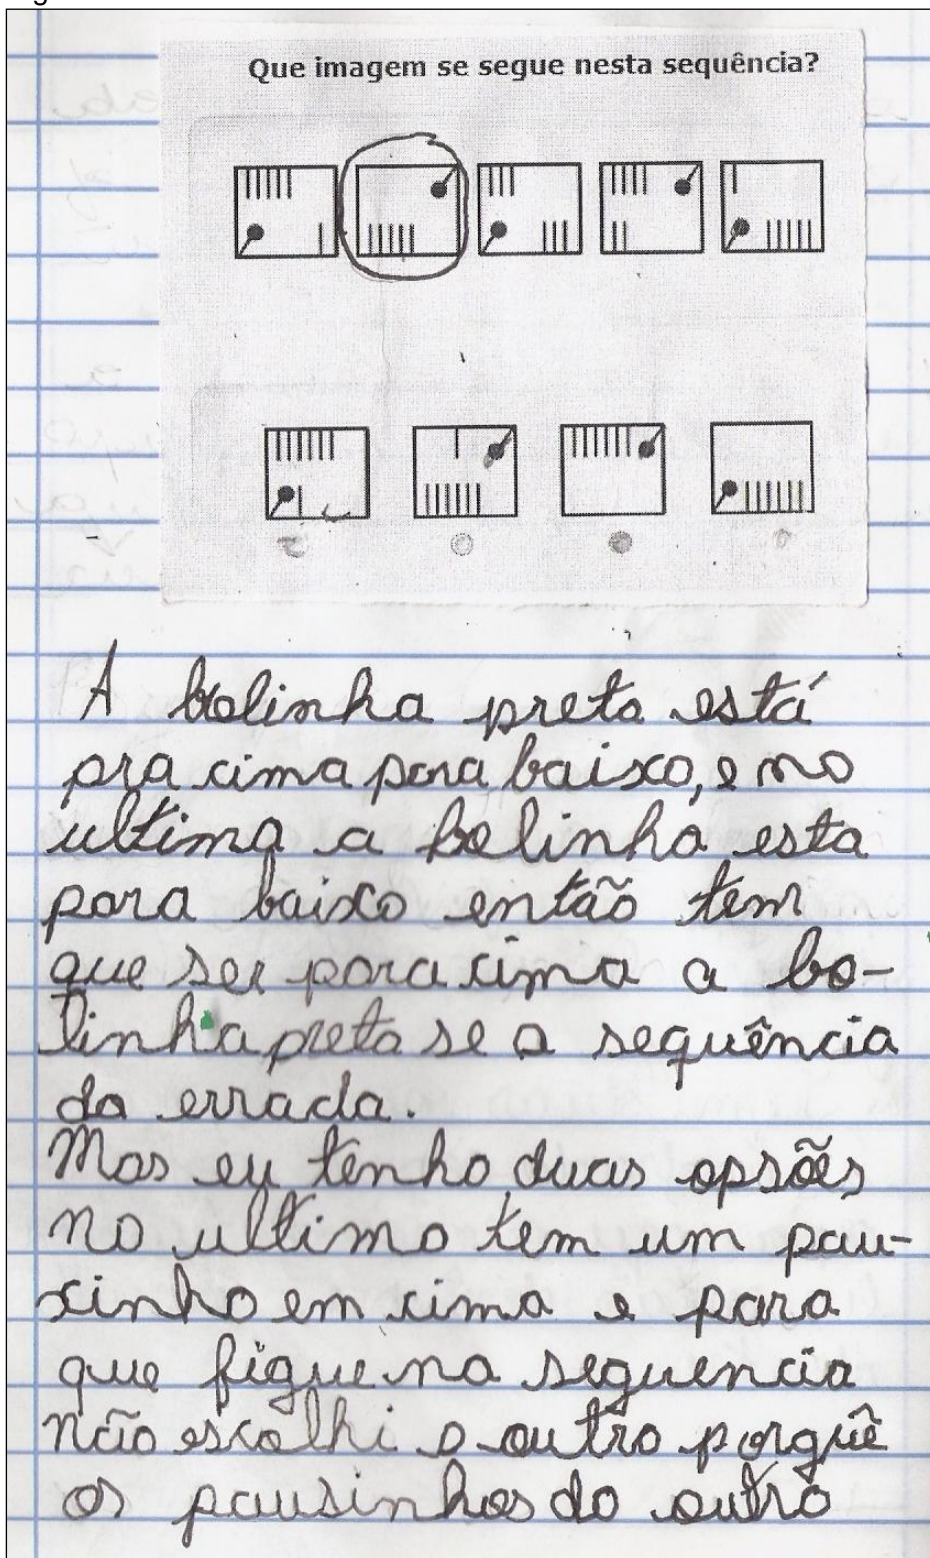 Que imagem se segue nesta sequência?
A bolinha preta está
pra cima para baixo, e no
ultima a bolinha esta
para baixo então tem
que ser para cima a bo-
linha preta se a sequência
da errada.
Mas eu tenho duas opsões
no ultimo tem um pau-
xinho em cima e para
que figue na seguencia
não escolhi o outro porguê
os pausinhos do outro